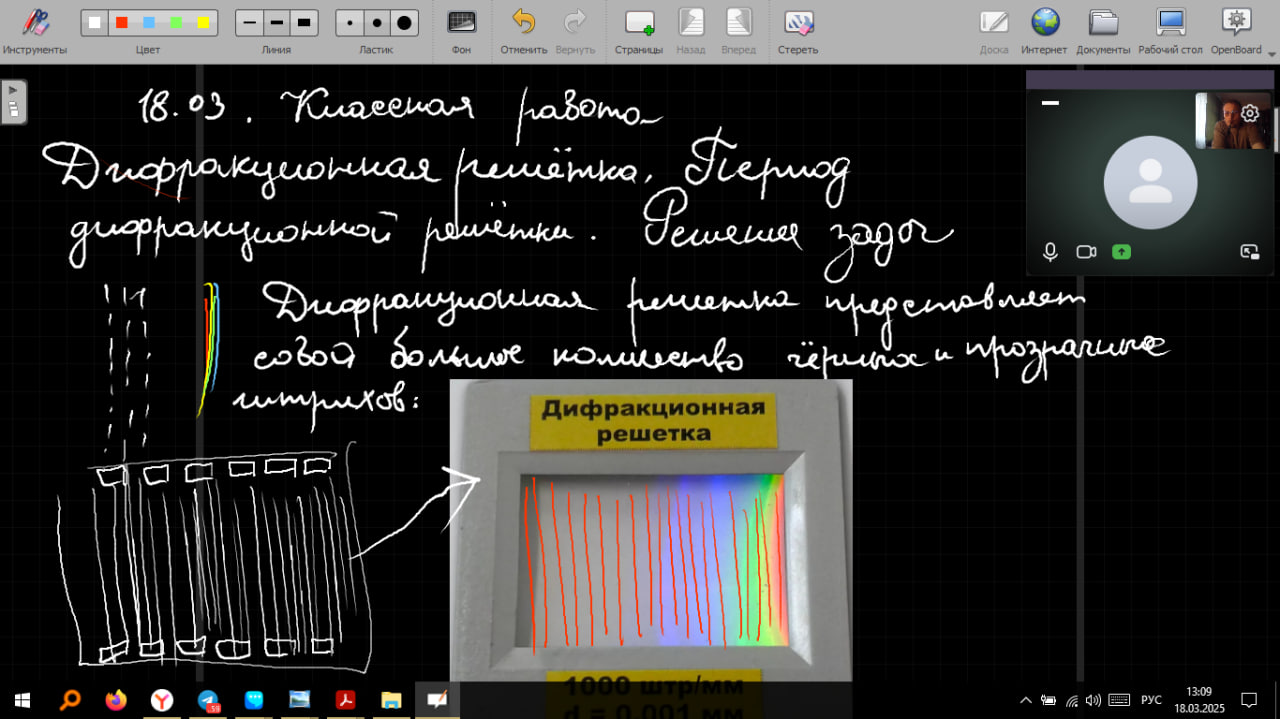 Инструменты Цвет Линия Ластик Фон Отменить Вернуть Страницы Назад Вперед Стереть Доска Интернет Документы Рабочий стол OpenBoard
18.03. Классная работа
Дифракционная решётка. Период
дифракционной решётки. Решение задач
Дифракционная решетка представляет
собой большое количество чёрных и прозрачных
штрихов:
Дифракционная
решетка
1000 штр/мм
d = 0,001 мм
59
РУС
13:09
18.03.2025